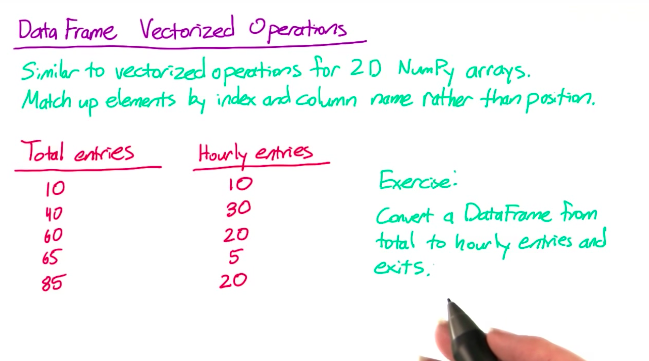 Data Frame Vectorized Operations
Similar to vectorized operations for 2D NumPy arrays.
Match up elements by index and column name rather than position.
Total entries Hourly entries
10 10
40 30
60 20
65 5
85 20
Exercise:
Convert a DataFrame from
total to hourly entries and
exits.